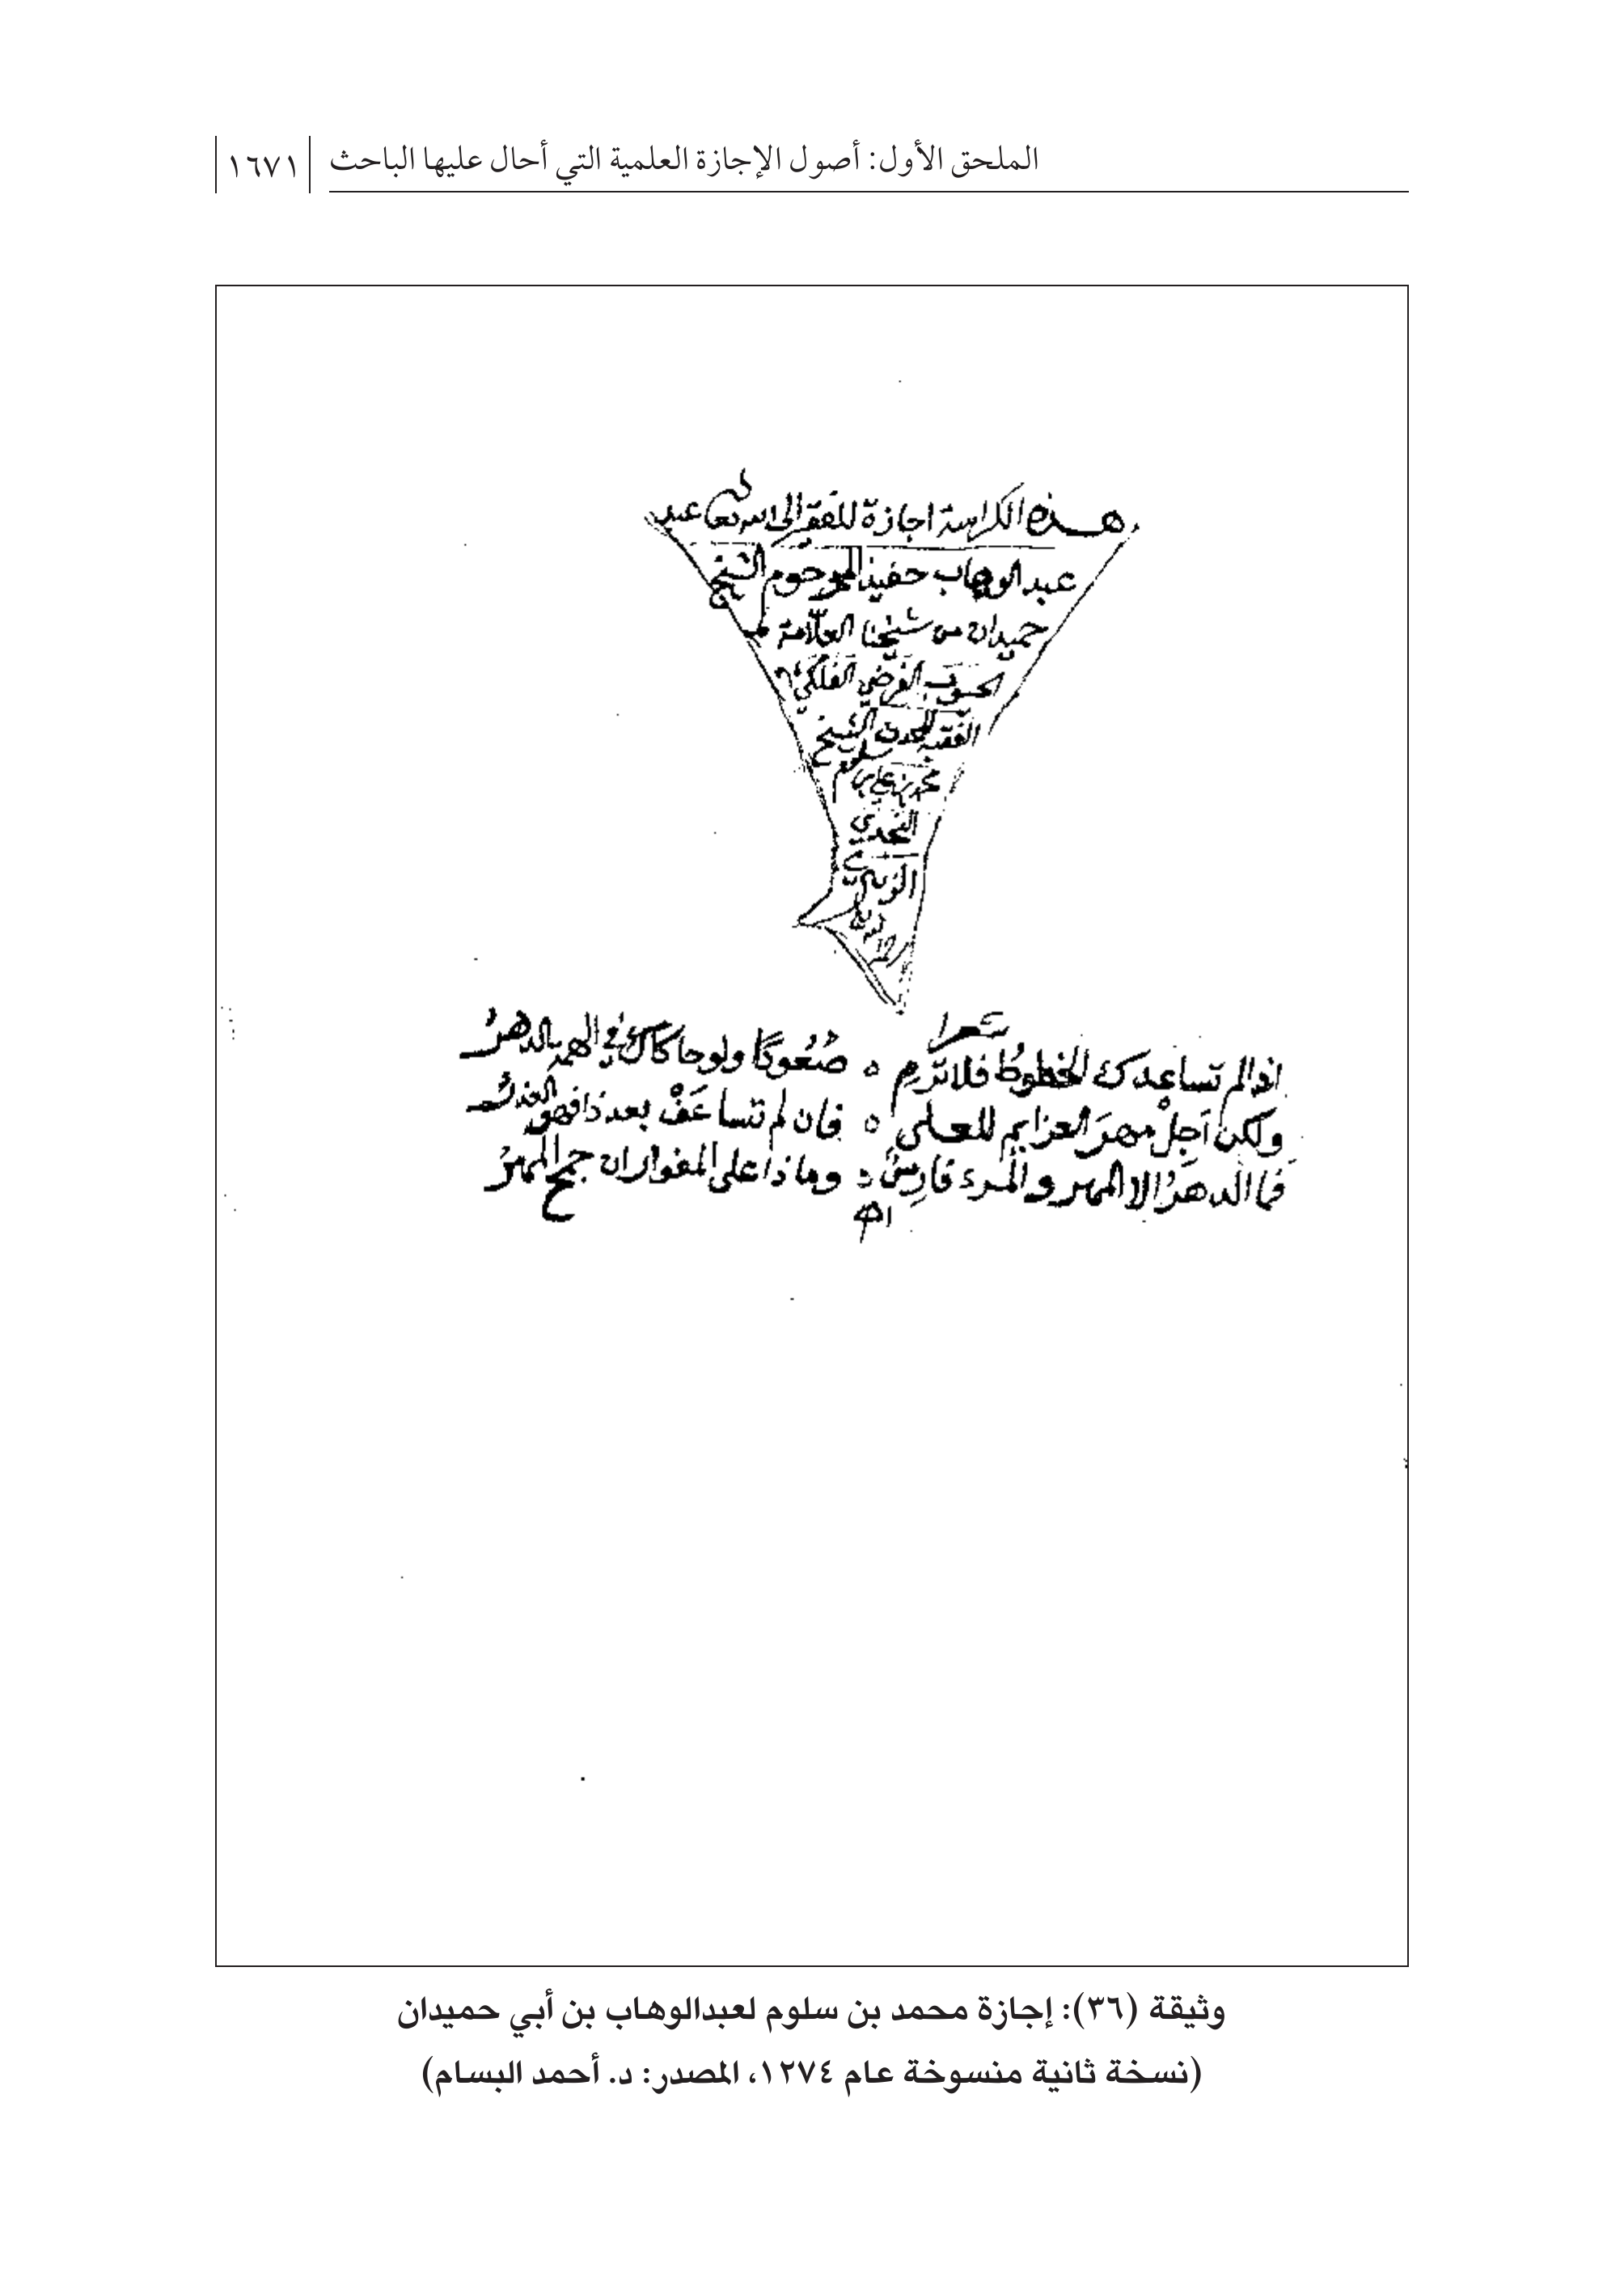 الملحق الأول: أصول الإجازة العلمية التي أحال عليها الباحث ١٦٧١
هذه الكراسة اجازة للفقير الى الله تعالى عبد
عبد الوهاب حفيد المرحوم الشيخ
حميدان من شيخنا العلامة
الفرضي الفلكي
الفقيه المحدث الشيخ
محمد بن علي بن سلوم
النجدي
الزبيري
شعرا
اذا لم تساعدك الحظوظ فلا ترم ه صُعُودًا ولو حاكاك في الهمة الدهرُ
ولكن اَجِلْ مهرَ العزايم للعلى ه فان لم تساعَفْ بعد ذا فهو العذرُ
فما الدهرُ الا المهر والمرء فارسٌ ه وماذا على المغوار ان جمح المهرُ
اهـ
وثيقة (٣٦): إجازة محمد بن سلوم لعبدالوهاب بن أبي حميدان
(نسخة ثانية منسوخة عام ١٢٧٤، المصدر: د. أحمد البسام)